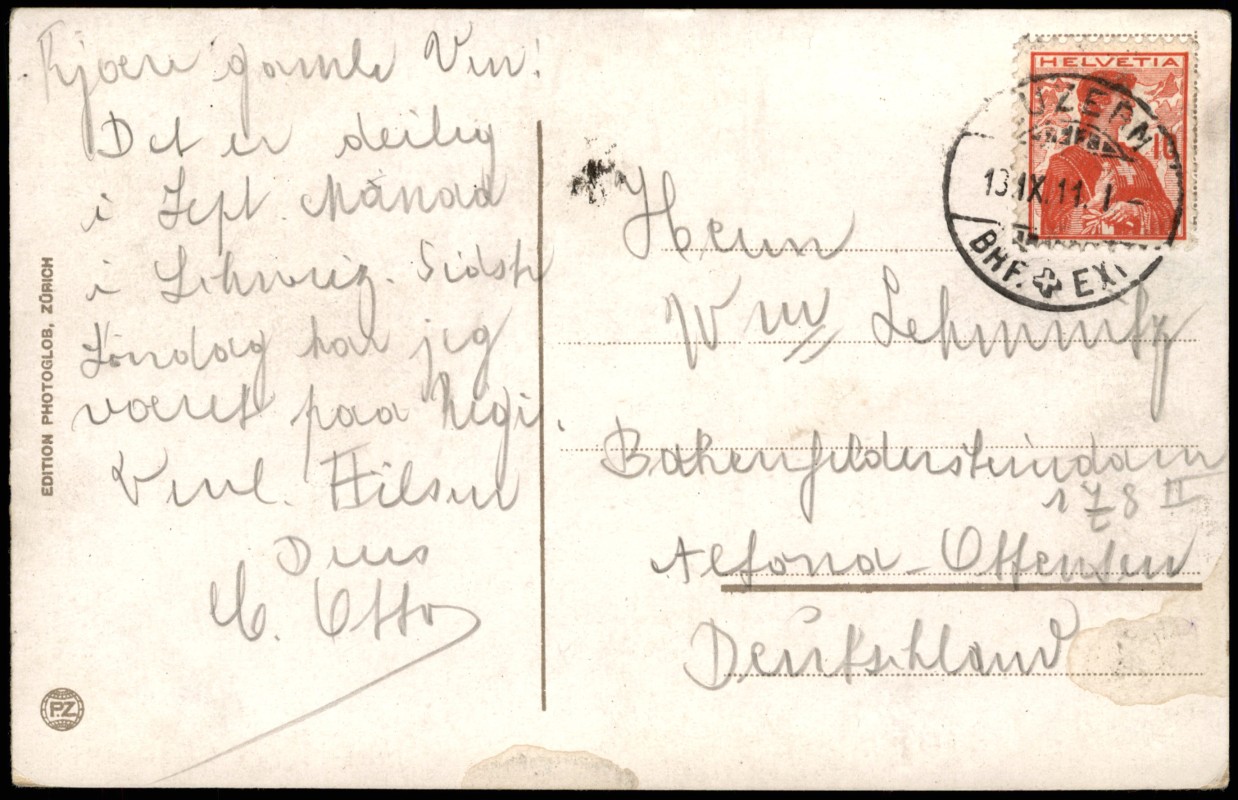 Kjære gamle Ven!
Det er deilig
i Sept. Månad
i Schweiz. Sidste
Søndag har jeg
været paa Rigi.
Venl. Hilsen
Dens
C. Otto
EDITION PHOTOGLOB, ZÜRICH
P.Z
HELVETIA
10
LUZERN
13.IX.11.
BHF. EXP.
Herrn
Wm Lehmnitz
Bahrenfeldersteindamm
178 II
Altona-Ottensen
Deutschland